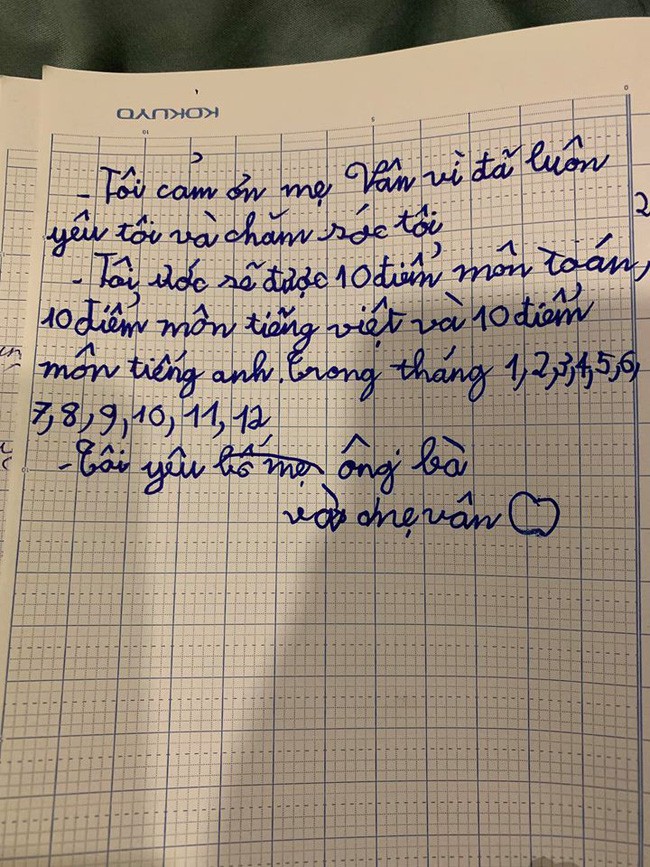 KOKUYO
- Tôi cảm ơn mẹ Vân vì đã luôn
yêu tôi và chăm sóc tôi
- Tôi ước sẽ được 10 điểm môn toán,
10 điểm môn tiếng việt và 10 điểm
môn tiếng anh. trong tháng 1,2,3,4,5,6,
7,8,9,10,11,12
- Tôi yêu bố mẹ ông bà
và mẹ vân